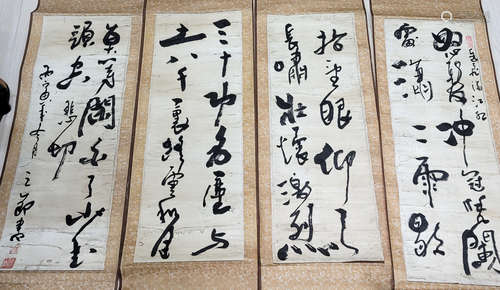 岳飛滿江紅
怒髮冲冠凭闌
處瀟瀟雨歇
抬望眼仰天
長嘯壯懷激烈
三十功名塵與
土八千里路雲和月
莫等閒白了少年
頭空悲切